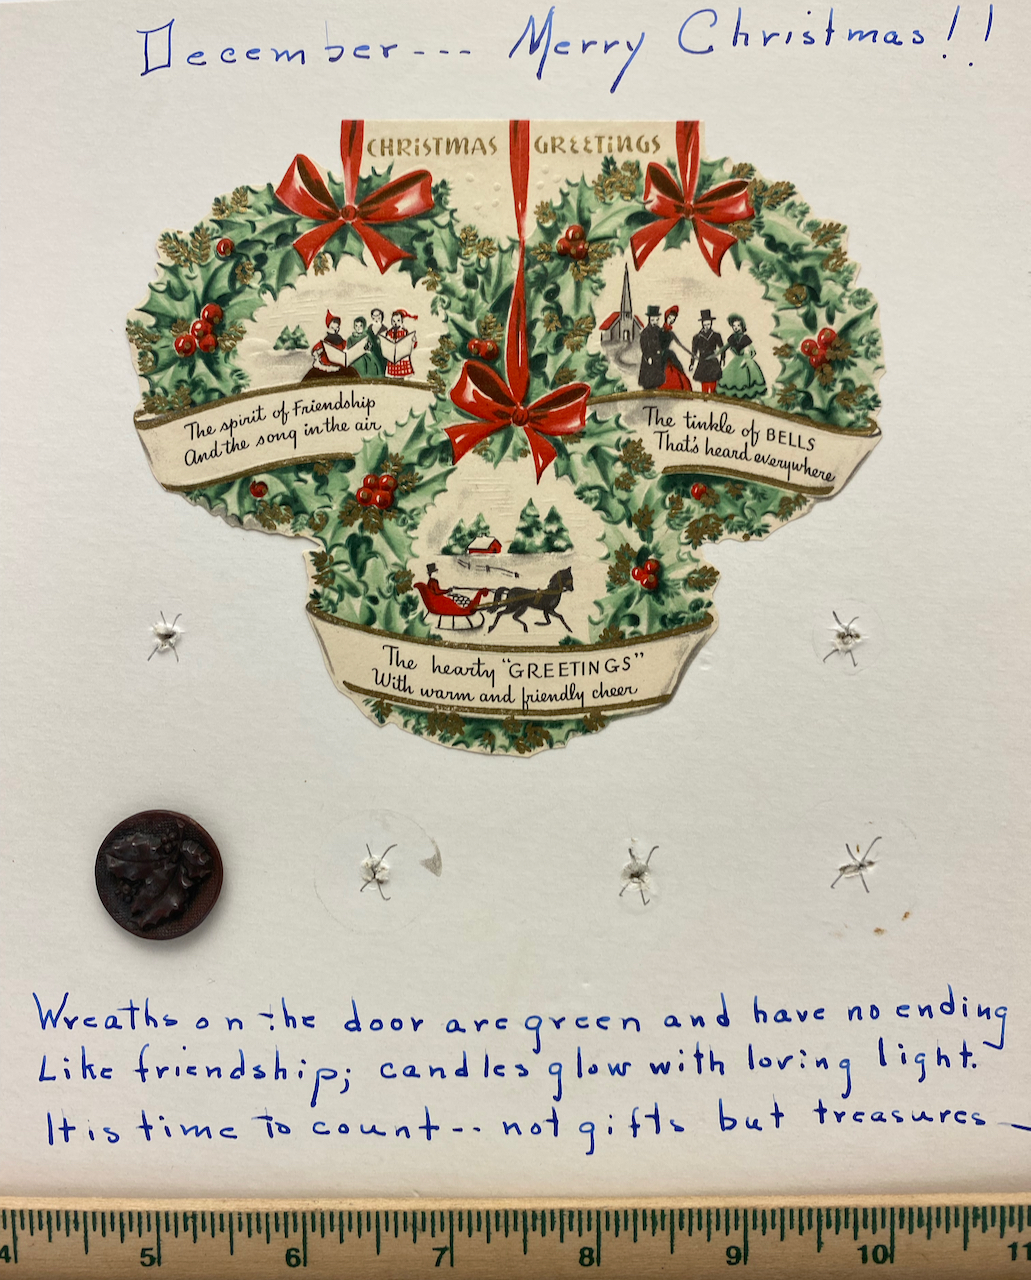 December--- Merry Christmas!!
CHRISTMAS GREETINGS
The spirit of Friendship
And the song in the air
The tinkle of BELLS
That's heard everywhere
The hearty "GREETINGS"
With warm and friendly cheer
Wreaths on the door are green and have no ending
Like friendship; candles glow with loving light.
It is time to count-- not gifts but treasures—
4 5 6 7 8 9 10 11